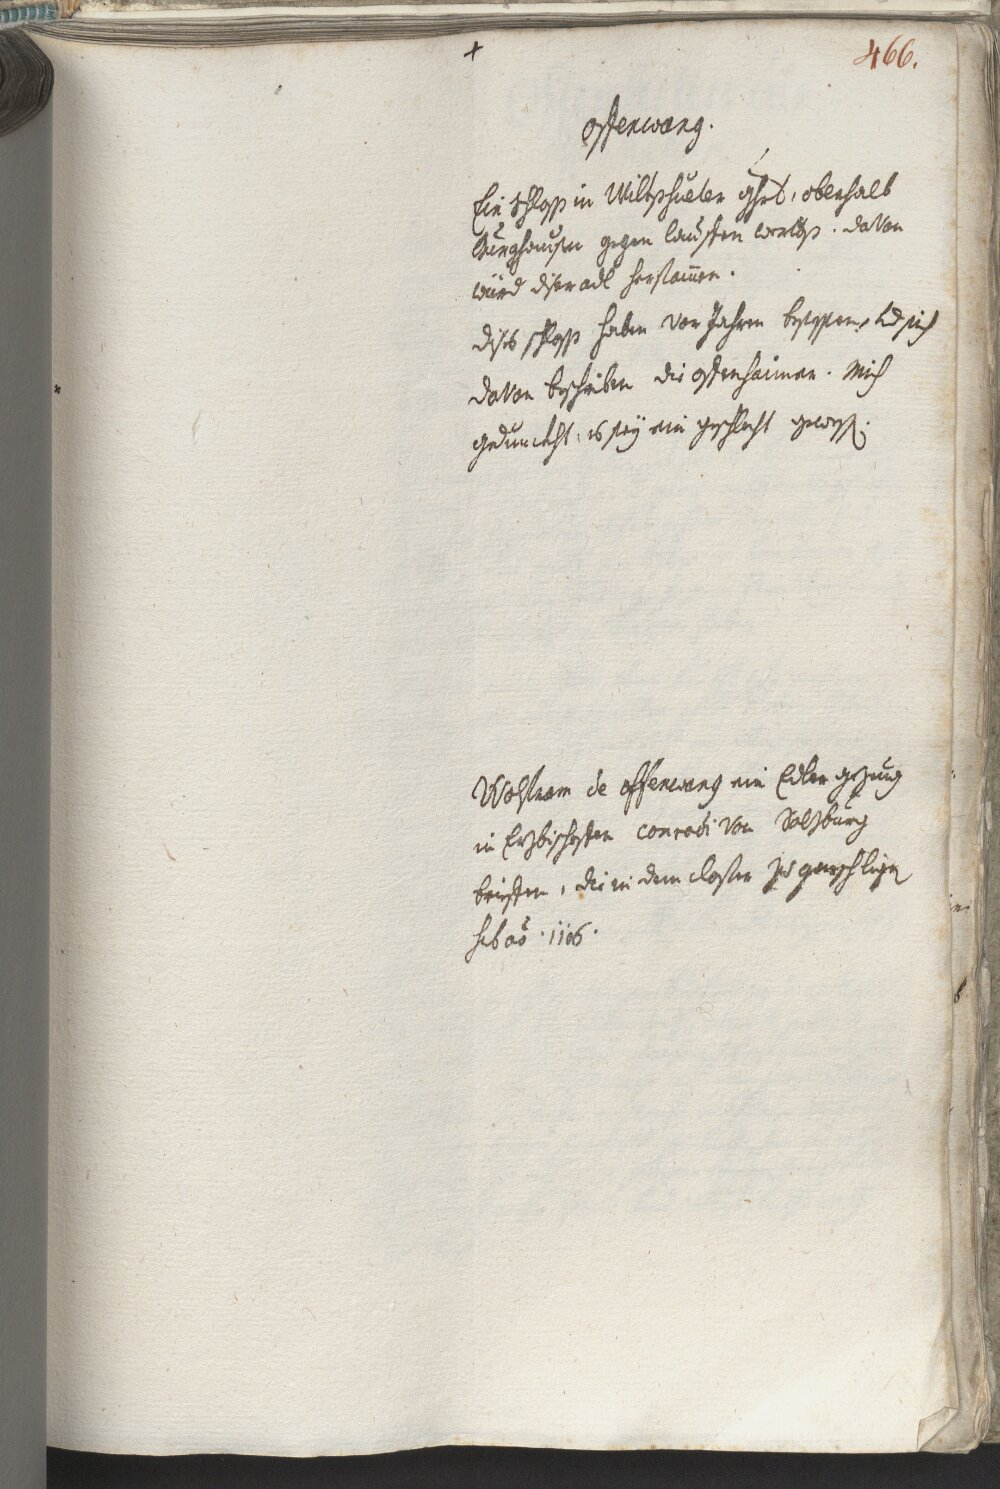 +
466.
Offenwang.
Ein schloss in Wiltshueter ghrt, oberhalb
Burghausen gegen lauffen werths. davon
würd diser adl herstamen.
dises schloss haben vor Jahren besessen, und sich
davon beschriben die offenhaimer. Mich
gedunckht, es sey ein geschlecht gewest.
Wolfram de offenwang ein Edler gezeug
in Erzbischoffen conradi von Salzburg
brieffen, die in dem closter
hab ao. 1106.